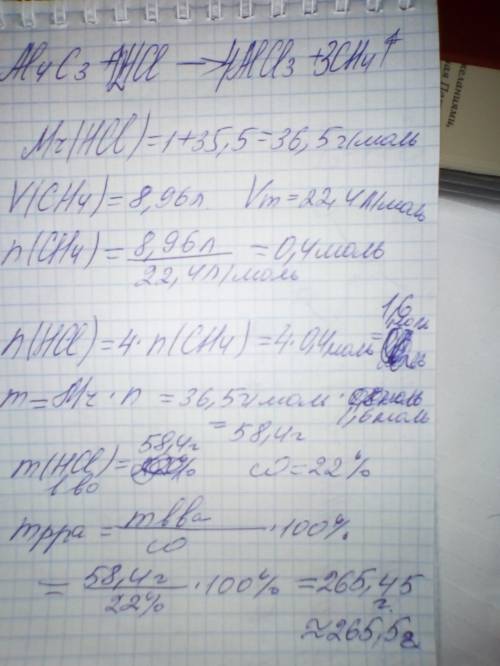 Al4C3 + 12HCl → 4AlCl3 + 3CH4↑
Mr(HCl) = 1 + 35,5 = 36,5 г/моль
V(CH4) = 8,96 л Vm = 22,4 л/моль
n(CH4) = 8,96 л / 22,4 л/моль = 0,4 моль
n(HCl) = 4 · n(CH4) = 4 · 0,4 моль = 1,6 моль
m = Mr · n = 36,5 г/моль · 1,6 моль
= 58,4 г
m(HCl) = 58,4 г ω = 22%
в-во
mр-ра = mв-ва / ω · 100%
= 58,4 г / 22% · 100% = 265,45 г
≈ 265,5 г